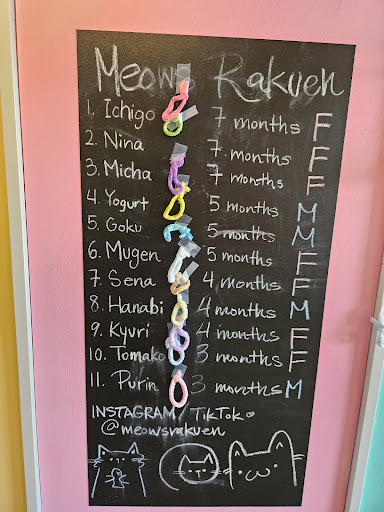 Meows Rakuen
1. Ichigo 7 months F
2. Nina 7 months F
3. Micha 7 months F
4. Yogurt 5 months M
5. Goku 5 months M
6. Mugen 5 months F
7. Sena 4 months F
8. Hanabi 4 months M
9. Kyuri 4 months F
10. Tomako 3 months F
11. Purin 3 months M
INSTAGRAM / TikTok
@meowsrakuen